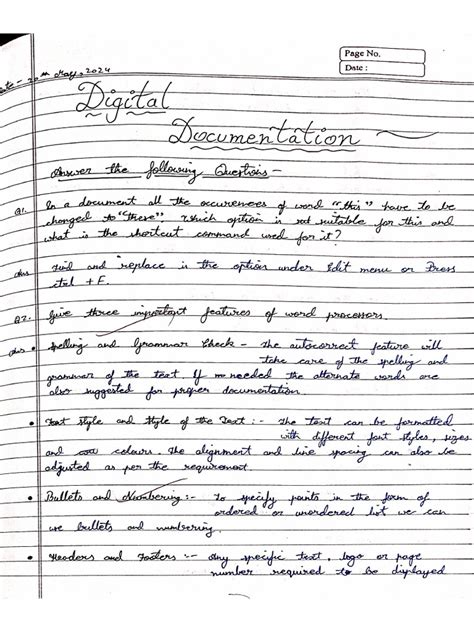 Page No.
Date :
Date - 20th May, 2024
Digital
Documentation
Answer the following Questions -
Q1. In a document all the occurences of word "this" have to be
changed to "these". Which option is suitable for this and
what is the shortcut command used for it?
Ans Find and replace is the option under Edit menu or Press
ctrl + F.
Q2. Give three important features of word processors.
Ans • Spelling and Grammar Check - The autocorrect feature will
take care of the spelling and
grammar of the text. If needed the alternate words are
also suggested for proper documentation.
• Font Style and Style of the Text :- The text can be formatted
with different font styles, sizes
and colours. The alignment and line spacing can also be
adjusted as per the requirement.
• Bullets and Numbering :- To specify points in the form of
ordered or unordered list we can
use bullets and numbering.
• Headers and Footers :- Any specific text, logo or page
number required to be displayed